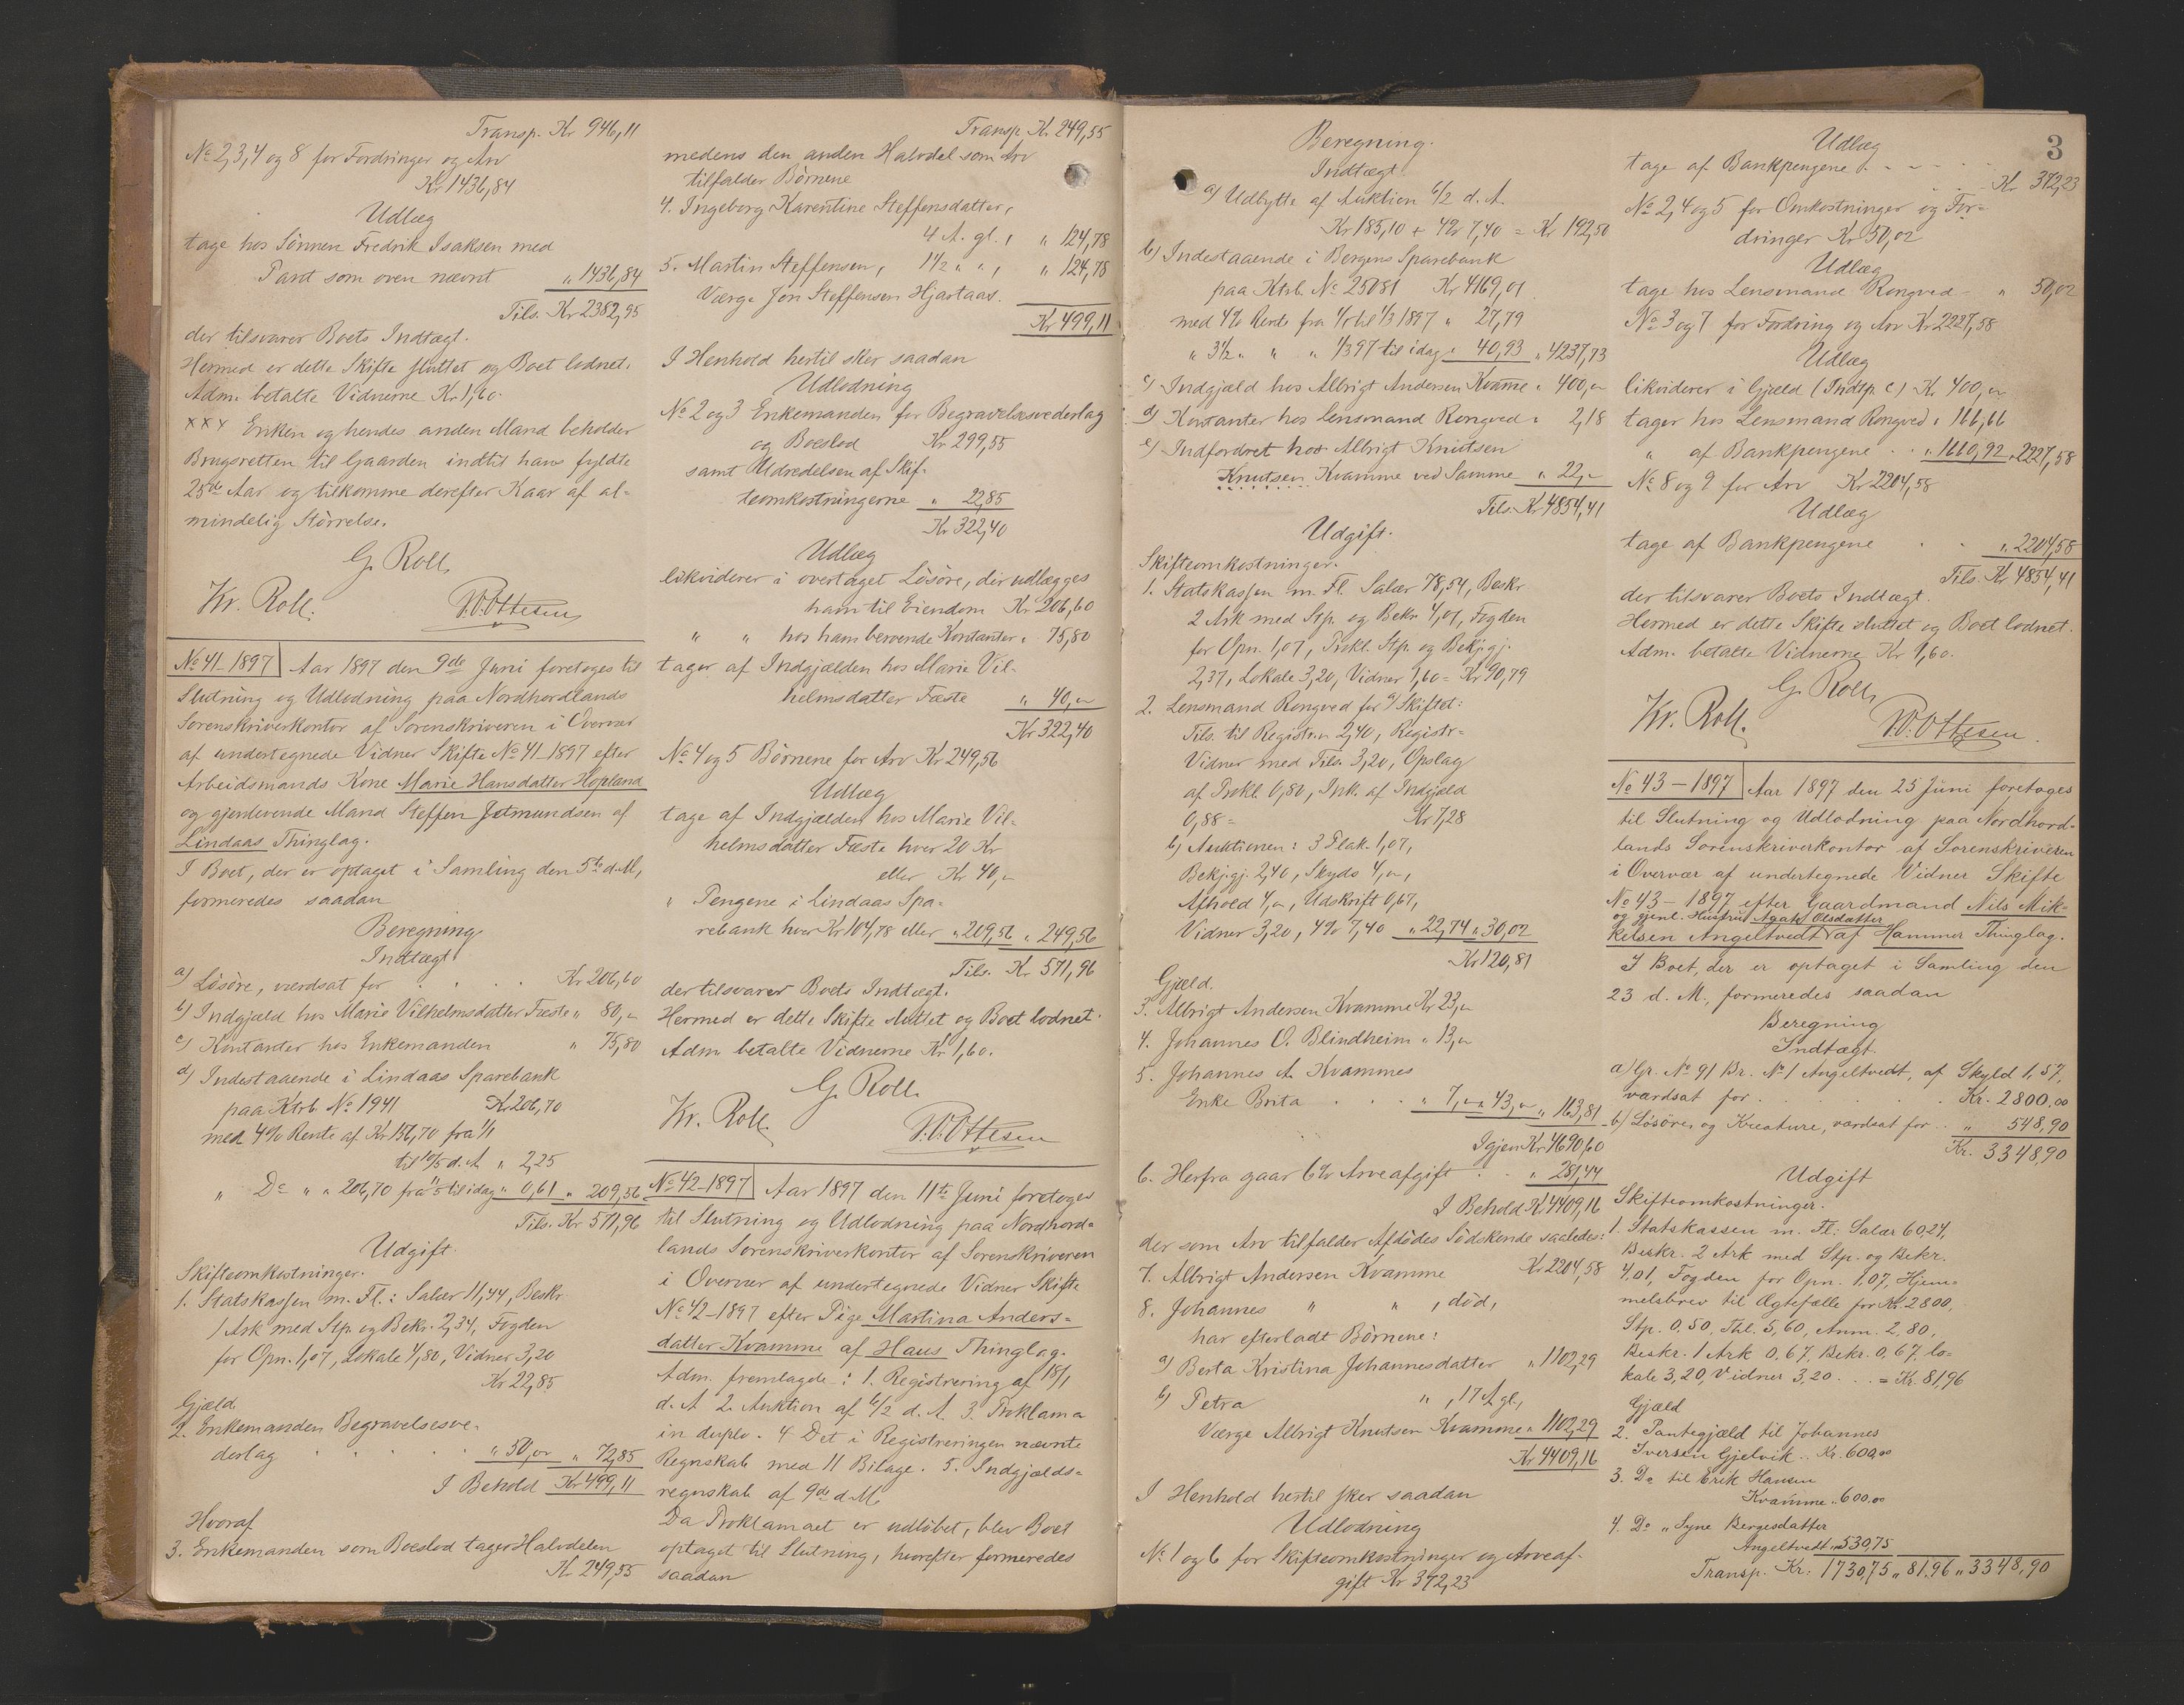 Transp. Kr 946,11
No 2, 3, 4 og 8 for Fordringer og Arv
Kr 1436,84
Udlæg
tage hos Sønnen Fredrik Isaksen med
Pant som oven nævnt " 1436,84
Tils. Kr 2382,95
der tilsvarer Boets Indtægt.
Hermed er dette Skifte sluttet og Boet lodnet.
Adm. betalte Vidnerne Kr 1,60.
××× Enken og hendes anden Mand beholder
Brugsretten til Gaarden indtil hans fyldte
25de Aar og tilkomme derefter Kaar af al-
mindelig Størrelse.
G. Roll,
Kr. Roll. P.W.Ottesen
No 41-1897 Aar 1897 den 9de Juni foretoges til
Slutning og Udlodning paa Nordhordlands
Sorenskriverkontor af Sorenskriveren i Overvær
af undertegnede Vidner Skifte No 41-1897 efter
Arbeidsmands Kone Marie Hansdatter Hopland
og gjenlevende Mand Steffen Jetmundsen af
Lindaas Thinglag.
I Boet, der er optaget i Samling den 5te d.M,
formeredes saadan
Beregning
Indtægt
a) Løsøre, værdsat for . . . . Kr 206,60
b) Indgjæld hos Marie Vilhelmsdatter Fæste " 80,"
c) Kontanter hos Enkemanden " 75,80
d) Indestaaende i Lindaas Sparebank
paa Ktrb. No 1941 Kr 206,70
med 4% Rente af Kr 156,70 fra 1/1
til 10/5 d. A " 2,25
" Do " " 206,70 fra 11/5 til idag " 0,61 " 209,56
Tils. Kr 571,96
Udgift.
Skifteomkostninger.
1. Statskassen m. Fl.: Salær 11,44, Beskr.
1 Ark med Stp. og Bekr. 2,34, Fogden
for Opn. 1,07, Lokale 4,80, Vidner 3,20
Kr 22,85
Gjæld.
2. Enkemanden Begravelsesve-
derlag . . . . . " 50,00 " 72,85
I Behold Kr 499,11
Hvoraf
3. Enkemanden som Boeslod tager Halvdelen
Kr 249,55
Transp. Kr 249,55
medens den anden Halvdel som Arv
tilfalder Børnene
4. Ingeborg Karentine Steffensdatter,
4 A. gl., " 124,78
5. Martin Steffensen, 1½ " ", " 124,78
Værge Jon Steffensen Hjartaas.
Kr 499,11
I Henhold hertil sker saadan
Udlodning
No 2 og 3 Enkemanden for Begravelsesvederlag
og Boeslod Kr 299,55
samt Udredelsen af Skif-
teomkostningerne " 22,85
Kr 322,40
Udlæg
likviderer i overtaget Løsøre, der udlægges
ham til Eiendom Kr 206,60
" " hos ham beroende Kontanter " 75,80
tager af Indgjælden hos Marie Vil-
helmsdatter Fæste " 40,"
Kr 322,40
No 4 og 5 Børnene for Arv Kr 249,56
Udlæg
tage af Indgjælden hos Marie Vil-
helmsdatter Fæste hver 20 Kr
eller Kr 40,"
" Pengene i Lindaas Spa-
rebank hver Kr 104,78 eller " 209,56 " 249,56
Tils. Kr 571,96
der tilsvarer Boets Indtægt.
Hermed er dette Skifte sluttet og Boet lodnet.
Adm. betalte Vidnerne Kr 1,60.
G. Roll.
Kr. Roll. P.W.Ottesen
No 42-1897 Aar 1897 den 11te Juni foretoges
til Slutning og Udlodning paa Nordhord-
lands Sorenskriverkontor af Sorenskriveren
i Overvær af undertegnede Vidner Skifte
No 42-1897 efter Pige Martina Anders-
datter Kvamme af Haus Thinglag.
Adm. fremlagde: 1. Registrering af 18/1
d. A 2. Auktion af 6/2 d. A. 3. Proklama
in duplo. 4 Det i Registreringen nævnte
Regnskab med 11 Bilage. 5. Indgjælds-
regnskab af 9de d. M.
Da Proklamaet er udløbet, blev Boet
optaget til Slutning, hvorefter formeredes
saadan
Beregning.
Indtægt
a) Udbytte af Auktion 6/2 d. A.
Kr 185,10 + 4% 7,40 = Kr 192,50
b) Indestaaende i Bergens Sparebank
paa Ktrb. No 25081 Kr 4169,01
med 4% Rente fra 1/1 til 1/3 1897 " 27,79
" 3½ " " " 1/3 97 til idag " 40,93 " 4237,73
c) Indgjæld hos Albrigt Andersen Kvamme " 400,"
d) Kontanter hos Lensmand Rongved " 2,18
e) Indfordret hos Albrigt Knutsen
Knutsen Kvamme ved Samme " 22,"
Tils. Kr 4854,41
Udgift.
Skifteomkostninger.
1. Statskassen m. Fl. Salær 78,54, Beskr
2 Ark med Stp. og Bekr 4,01, Fogden
for Opn. 1,07, Prokl. Stp. og Bekjgj.
2,37, Lokale 3,20, Vidner 1,60 = Kr 90,79
2. Lensmand Rongved for a) Skiftet:
Tils. til Registr.n 2,40, Registr-
Vidner med Tils. 3,20, Opslag
af Prokl. 0,80, Ink. af Indgjæld
0,88 = Kr 7,28
b) Auktionen: 3 Plak. 1,07,
Bekjgj. 2,40, Skyds 4,",
Afhold 4,", Udskrift 0,67,
Vidner 3,20, 4% 7,40 " 22,74 " 30,02
Kr 120,81
Gjæld.
3. Albrigt Andersen Kvamme Kr 23,"
4. Johannes O. Blindheim " 13,"
5. Johannes A. Kvammes
Enke Brita . . . " 7," " 43," " 163,81
Igjen Kr 4690,60
6. Herfra gaar 6% Arveafgift . . " 281,44
I Behold Kr 4409,16
der som Arv tilfalder Afdødes Sødskende saaledes:
7. Albrigt Andersen Kvamme Kr 2204,58
8. Johannes " " , død,
har efterladt Børnene:
a) Berta Kristina Johannesdatter " 1102,29
b) Petra " , 17 A. gl.,
Værge Albrigt Knutsen Kvamme " 1102,29
Kr 4409,16
I Henhold hertil sker saadan
Udlodning
No 1 og 6 for Skifteomkostninger og Arveaf-
gift Kr 372,23
3
Udlæg
tage af Bankpengene . . . .
Kr 372,23
No 2, 4 og 5 for Omkostninger og For-
dringer Kr 50,02
Udlæg
tage hos Lensmand Rongved " 50,02
No 3 og 7 for Fordring og Arv Kr 2227,58
Udlæg
likviderer i Gjæld (Indtp. c) Kr 400,"
tager hos Lensmand Rongved " 166,66
" af Bankpengene . . " 1660,92 " 2227,58
No 8 og 9 for Arv Kr 2204,58
Udlæg
tage af Bankpengene . . " 2204,58
Tils. Kr 4854,41
der tilsvarer Boets Indtægt.
Hermed er dette Skifte sluttet og Boet lodnet.
Adm. betalte Vidnerne Kr 1,60.
G. Roll,
Kr. Roll. P.W.Ottesen.
No 43-1897 Aar 1897 den 25 Juni foretoges
til Slutning og Udlodning paa Nordhord-
lands Sorenskriverkontor af Sorenskriveren
i Overvær af undertegnede Vidner Skifte
No 43-1897 efter Gaardmand Nils Mik-
og gjenl. Hustru Agate Olsdatter
kelsen Angeltvedt af Hammer Thinglag.
I Boet, der er optaget i Samling den
23 d. M., formeredes saadan
Beregning
Indtægt.
a) Gr. No 91 Br. No 1 Angeltvedt, af Skyld 1,57,
værdsat for . . . . Kr. 2800,00
b) Løsøre og Kreature, værdsat for .. " 548,90
Kr. 3348,90
Udgift
Skifteomkostninger.
1. Statskassen m. Fl: Salær 60,24,
Beskr. 2 Ark med Stp. og Bekr.
4,01, Fogden for Opn. 1,07, Hjem-
melsbrev til Ægtefælle for Kr. 2800,
Stp. 0,50, Thl. 5,60, Anm. 2,80,
Beskr. 1 Ark 0,67, Bekr. 0,67, lo-
kale 3,20, Vidner 3,20 . . . = Kr. 81,96
Gjæld
2. Pantegjæld til Johannes
Iversen Gjelvik .. Kr. 600,00
3. Do til Erik Hansen
Kvamme .. 600,00
4. Do " Syne Børgesdatter
Angeltvedt " 530,75
Transp. Kr. 1730,75 " 81,96 " 3348,90